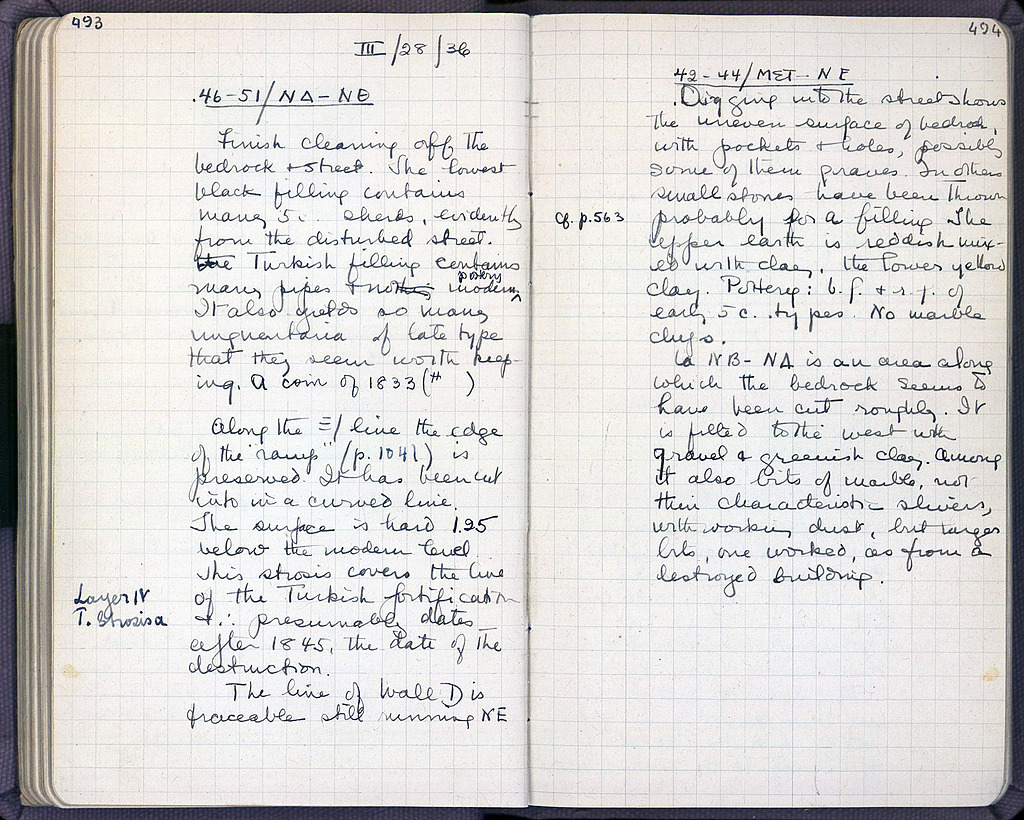 493
III/28/36
.46-51/NΔ-NΘ
Finish cleaning off the
bedrock + street. The lowest
black filling contains
many 5 c. sherds, evidently
from the disturbed street.
the Turkish filling contains
many pipes + no modern pottery
It also yields so many
unguentaria of late type
that they seem worth keep-
ing. A coin of 1833 (# )
Along the Ξ/ line the edge
of the "ramp" (p. 1041) is
preserved. It has been cut
into in a curved line.
The surface is hard 1.95
below the modern level.
This strosis covers the line
Layer IV
T. Strosis a
of the Turkish fortification
+ ∴ presumably dates
after 1845, the date of the
destruction.
The line of Wall D is
traceable still running NE
494
42-44/ΜΣΤ-ΝΕ
Digging into the street shows
the uneven surface of bedrock,
with pockets + holes, possibly
some of them graves. In others
small stones have been thrown
cf. p. 563
probably for a filling. The
upper earth is reddish mix-
ed with clay, the lower yellow
clay. Pottery: b.f. + r.f. of
early 5 c. types. No marble
chips.
NB-NΔ is an area along
which the bedrock seems to
have been cut roughly. It
is filled to the west with
gravel & greenish clay. Among
it also bits of marble, not
thin characteristic slivers,
with working dust, but larger
bits, one worked, as from a
destroyed building.